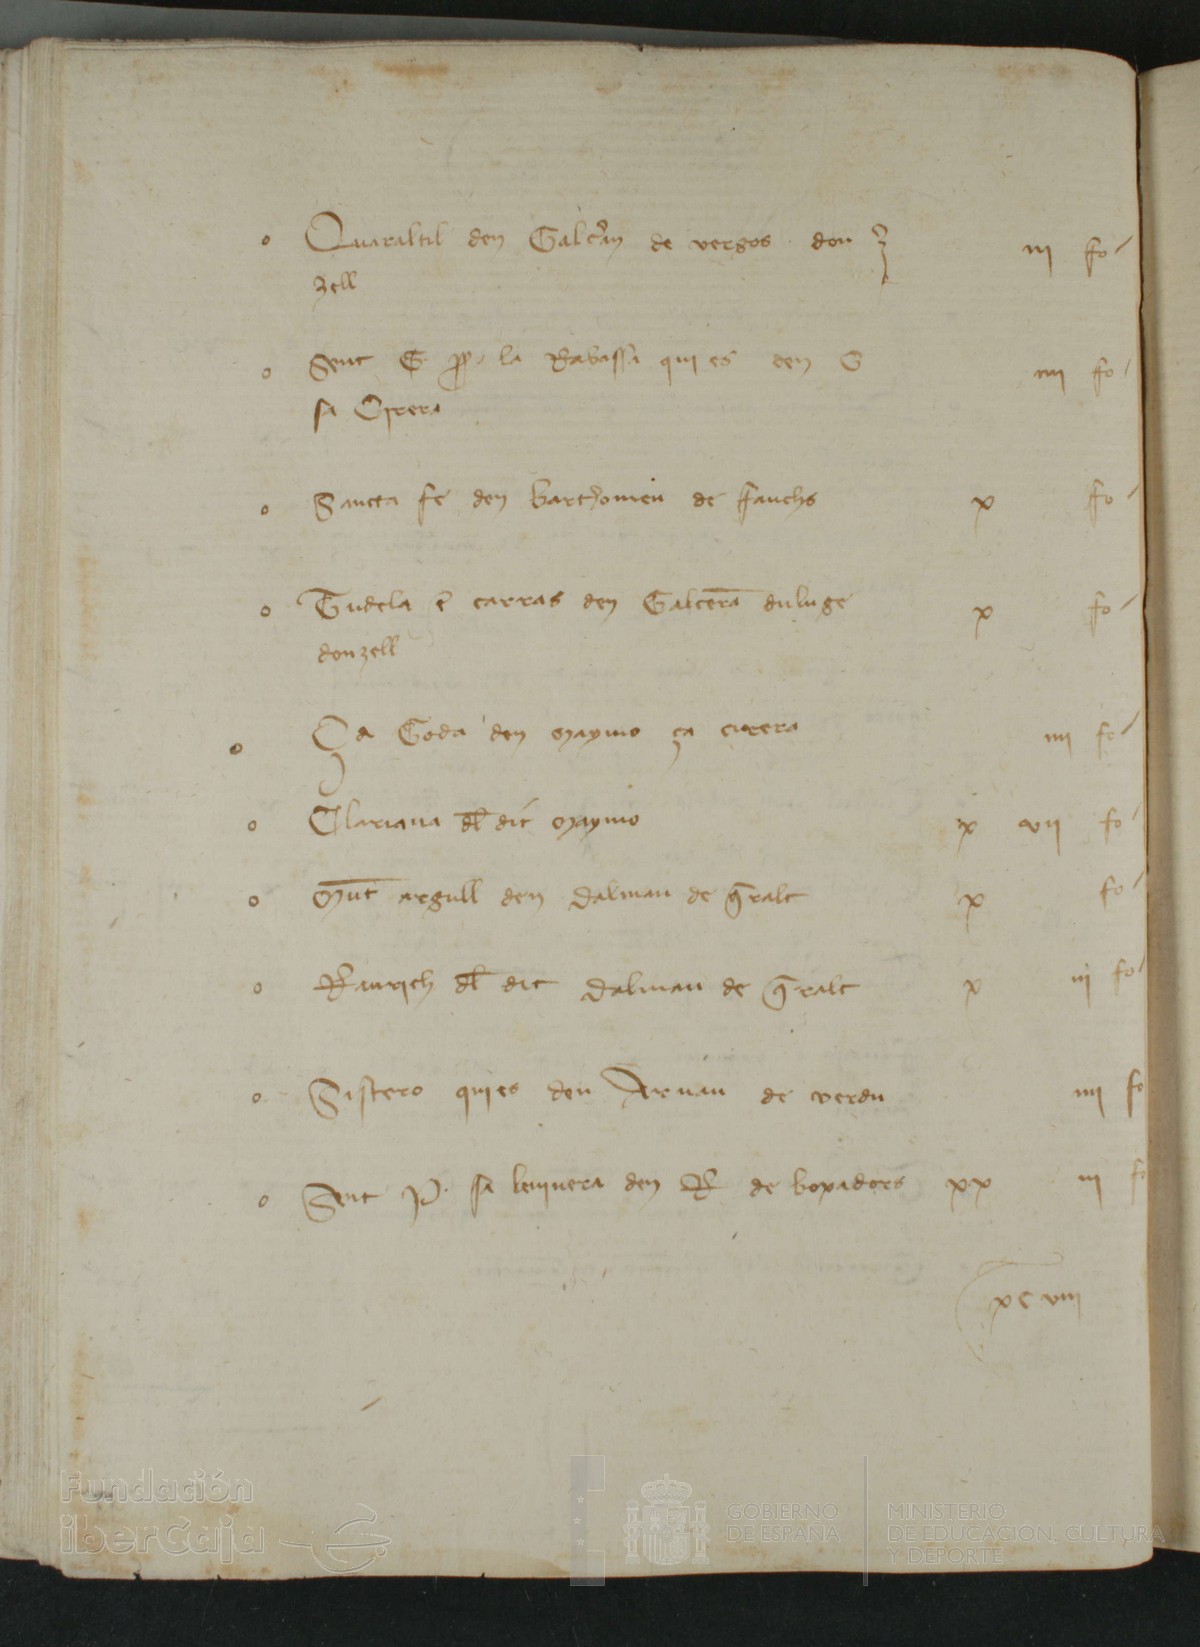 o Quaraltil den Galcran de vergos don iii fo
zell
o Sent G pp la Rabassa qui es den G iiii fo
sa Cirera
o Sancta fe den barthomeu de fauchs x fo
o Tudela e carras den Galcera duluge x fo
donzell
o Ça Goda den maymo ça cirera iiii fo
o Clariana dl dit maymo x vii fo
o Munt argull den dalmau de qralt x fo
o Raurich dl dit dalmau de qralt x iii fo
o Sistero qui es den Arnau de verdu iiii fo
o Sent P. sa den R de boxadors xx iii fo
xc viii
Fundación
iberCaja
GOBIERNO
DE ESPAÑA
MINISTERIO
DE EDUCACIÓN, CULTURA
Y DEPORTE